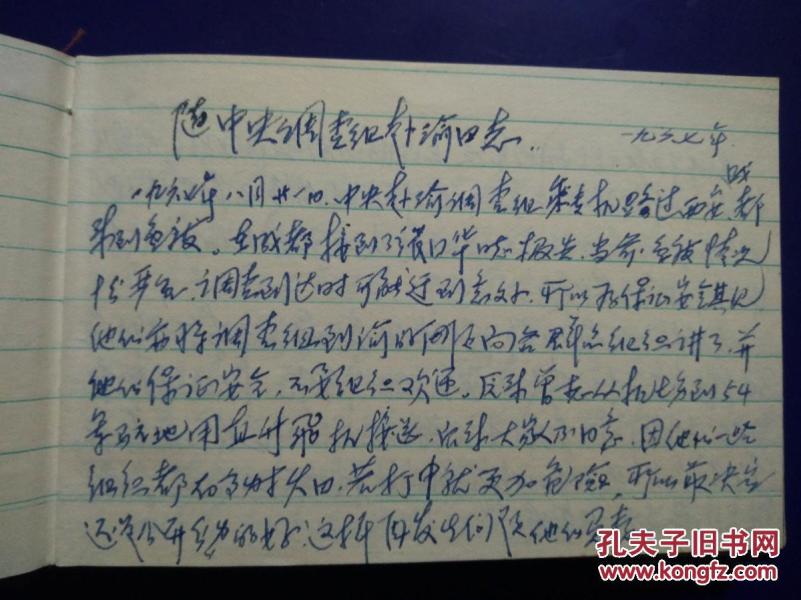 随中央调查组赴渝日志. 一九六七年
一九六七年八月廿一日,中央赴渝调查组乘专机路过西安、成都
来到重。在成都接到了报告,当前重情况
十分严重,调查到达时可能遇到意外,所以为保证安全
他们亦将调查组到渝的向各群众组织讲了,并
他们保证安全,不要组织欢迎。后来曾想从机场到54
军驻地用直升飞机接送,后来大家不同意,因他们一些
组织都有,若打中就更加危险,所以最决定
还是公开的好,这样发生问题他们负责
孔夫子旧书网
www.kongfz.com